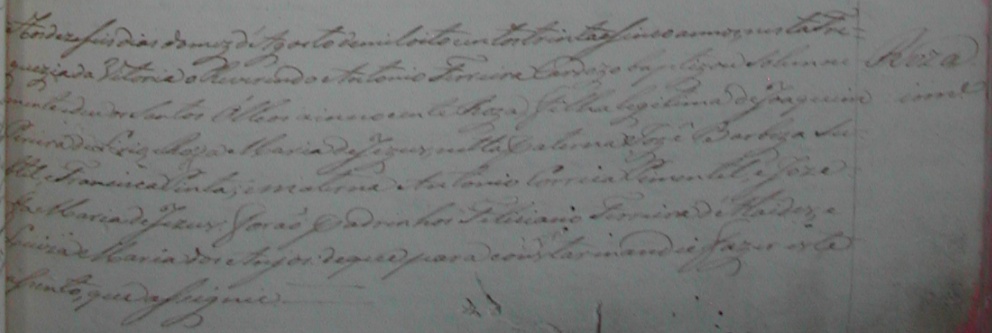 Aos dezaseis dias do mez de Agosto de mil oito centos trinta e sinco annos, nesta Fre-
guezia da Vitoria o Reverendo Antonio Ferreira Cardozo baptizou Solemne
mente e deu os Santos Oleos a innocente Roza, filha legitima de Joaquim
Pereira Roza Maria de Jezus, netta paterna Jozé Barboza
e Francisca Pinta, e materna Antonio Correia Pimentel, e Joze
fa Maria de Jezus: forão padrinhos Feliciano Ferreira de e
Luiza Maria dos Anjos: de que para constar mandei fazer este
asento, que asignei.
Roza
inn.e